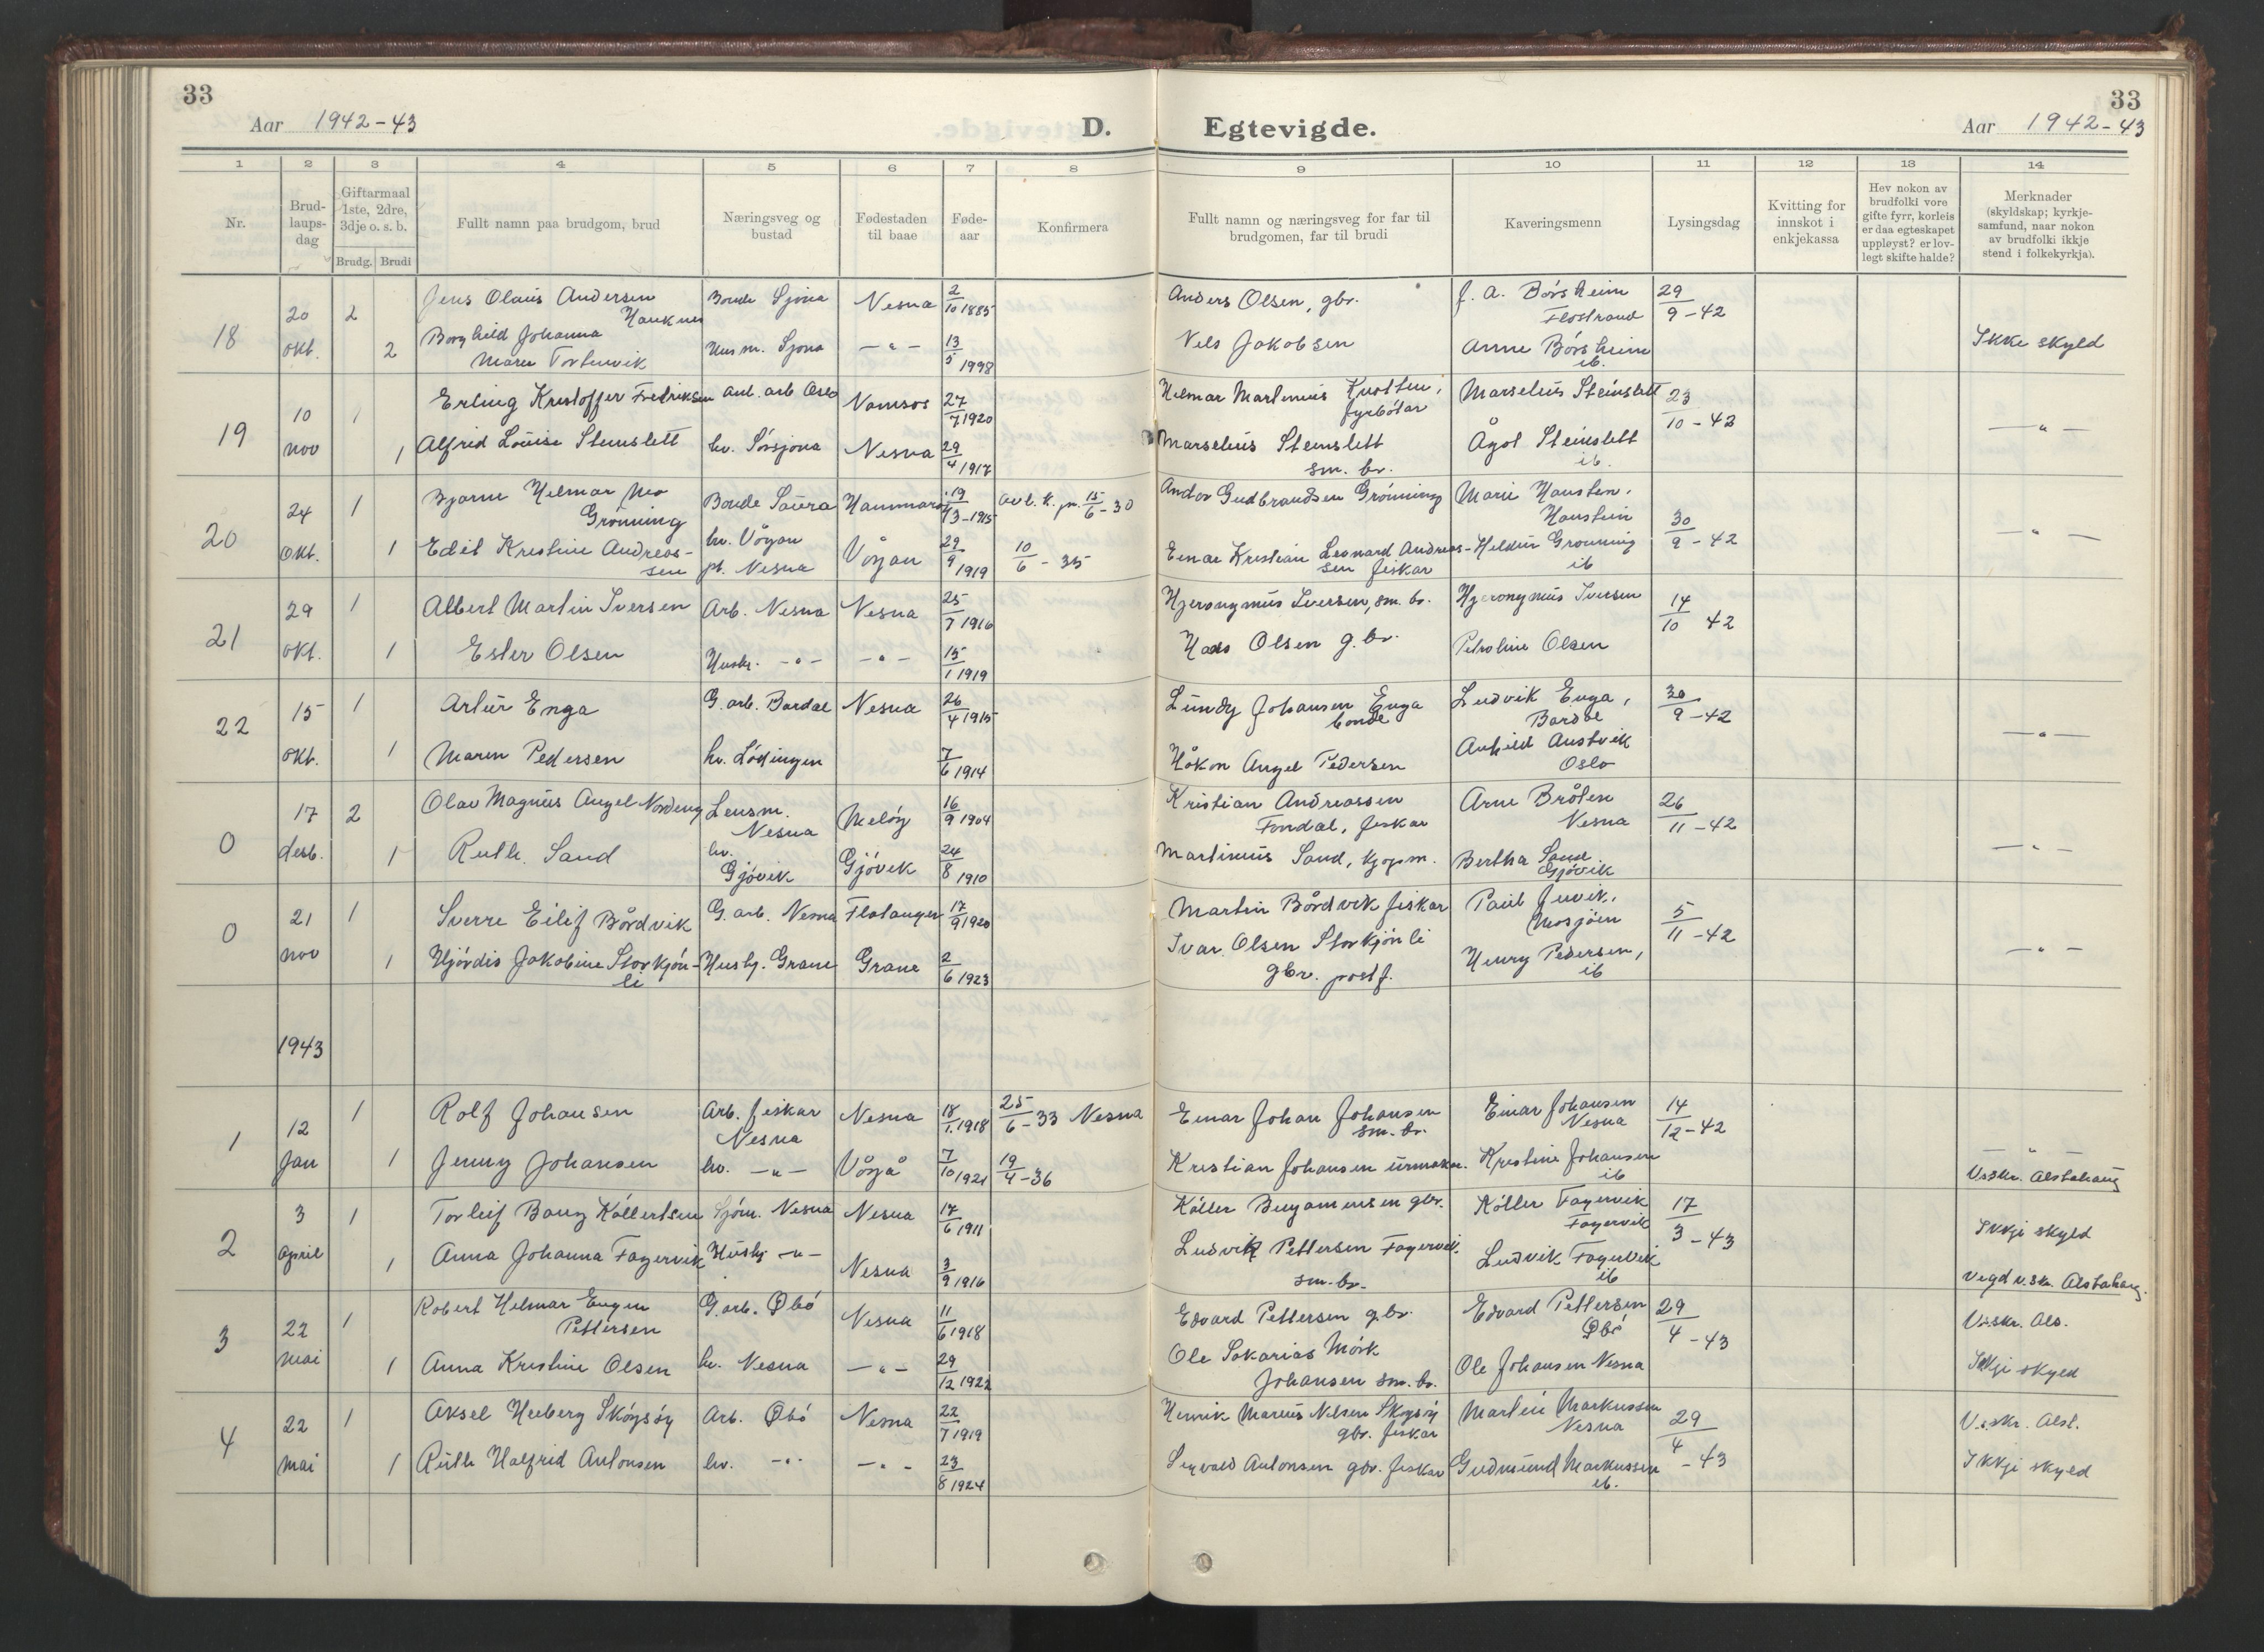 33
Aar 1942-43
D.
Egtevigde.
33
Aar 1942-43
1 2 3 4 5 6 7 8 9 10 11 12 13 14
Nr.
Brud-
laups-
dag
Giftarmaal
1ste, 2dre,
3dje o. s. b.
Brudg. Brudi
Fullt namn paa brudgom, brud
Næringsveg og
bustad
Fødestaden
til baae
Føde-
aar
Konfirmera
Fullt namn og næringsveg for far til
brudgomen, far til brudi
Kaveringsmenn
Lysingsdag
Kvitting for
innskot i
enkjekassa
Hev nokon av
brudfolki vore
gifte fyrr, korleis
er daa egteskapet
uppløyst? er lov-
legt skifte halde?
Merknader
(skyldskap; kyrkje-
samfund, naar nokon
av brudfolki ikkje
stend i folkekyrkja).
18
20
okt.
2
Jens Olaus Andersen
Hauknes
Bonde Sjona
Nesna
2/10 1885
Anders Olsen, gbr.
J. A. Børsheim
Flostrand
29/9-42
2
Borghild Johanna
Maren Tortenvik
Husm. Sjona
-"-
13/5 1998
Nels Jakobsen
Anne Børsheim
ib.
Ikke skyld
19
10
nov
1
Erling Kristoffer Fredriksen
anl. arb Oslo
Namsos
27/7 1920
Hilmar Martenius Knotten,
fyrbøtar
Marselius Steinslett
23/10-42
1
Alfrid Louise Steinslett
hv. Sørsjona
Nesna
29/4 1917
Marselius Steinslett
sm. br.
Ågot Steinslett
ib.
-"-
20
24
okt.
1
Bjarne Helmar Meo
Grønning
Bonde Saura
Hammarøy
19/3-1915
avl. k. pr. 15/6-30
Andor Gudbrandsen Grønning
Marie Haustein,
Haustein
30/9-42
1
Edit Kristine Andreas-
sen
hv. Vågan
pt. Nesna
Vågan
29/9 1919
10/6-35
Einar Kristian Leonard Andreas-
sen fiskar
Heldur Grønning
ib
-"-
21
29
okt.
1
Albert Martin Iversen
Arb. Nesna
Nesna
25/7 1916
Hjeronymus Iversen, sm. br.
Hjeronymus Iversen
14/10 42
1
Ester Olsen
Husbr. -"-
-"-
15/1 1919
Hans Olsen g.br.
Petroline Olsen
22
15
okt.
1
Artur Enga
G. arb. Bardal
Nesna
26/4 1915
Lundy Johansen Enga
bonde
Ludvik Enga,
Bardal
30/9-42
1
Maren Pedersen
hv. Lødingen
7/6 1914
Håkon Angel Pedersen
Anhild Austvik
Oslo
-"-
0
17
desb.
2
Olav Magnus Angel Nordeng
Lensm.
Nesna
Meløy
16/9 1904
Kristian Andreassen
Fondal, fiskar
Arne Bråten
Nesna
26/11-42
1
Ruth Sand
hv.
Gjøvik
Gjøvik
24/8 1910
Martinius Sand, kjøpm.
Bertha Sand
Gjøvik
-"-
0
21
nov
1
Sverre Eilif Bårdvik
G. arb. Nesna
Flatanger
17/9 1920
Martin Bårdvik fiskar
Paul Juvik,
Mosjøen
5/11-42
1
Hjørdis Jakobine Storkjøn-
li
Husbj. Grane
Grane
2/6 1923
Ivar Olsen Storkjønli
gbr. postf.
Henry Pedersen,
ib
-"-
1943
1
12
jan
1
Rolf Johansen
Arb. fiskar
Nesna
Nesna
18/1 1918
25/6-33 Nesna
Einar Johan Johansen
sm. br.
Einar Johansen
Nesna
14/12-42
1
Jenny Johansen
hv. -"-
Vågå
7/10 1921
19/4-36
Kristian Johansen urmakar.
Kristine Johansen
ib
"
V.skr. Alstahaug
2
3
april
1
Torleif Bang Køllertsen
Sjøm. Nesna
Nesna
17/6 1911
Køller Benjamensen gbr.
Køller Fagervik
Fagervik
17/3-43
Ikkji skyld
1
Anna Johanna Fagervik
Husbj -"-
Nesna
3/9 1916
Ludvik Pettersen Fagervik.
sm. br.
Ludvik Fagervik
ib
Vegd v.skr. Alstahaug.
3
22
mai
1
Robert Helmar Eugen
Pettersen
G. arb. Øbø
Nesna
11/6 1918
Edvard Pettersen g.br.
Edvard Pettersen
Øbø
29/4-43
V.skr. Als.
1
Anna Kristine Olsen
hv. Nesna
-"-
29/12 1922
Ole Sakarias Mørk
Johansen sm. br.
Ole Johansen Nesna
Ikkji skyld
4
22
mai
1
Aksel Heeberg Skógsøy
Arb. Øbø
Nesna
22/7 1919
Henrik Marius Nilsen Skogsøy
gbr. fiskar
Martin Markussen
Nesna
29/4-43
V.skr. Alst.
1
Ruth Halfrid Antonsen
hv. -"-
-"-
23/8 1924
Sigvald Antonsen gbr. fiskar
Gudmund Markussen
ib.
Ikkji skyld